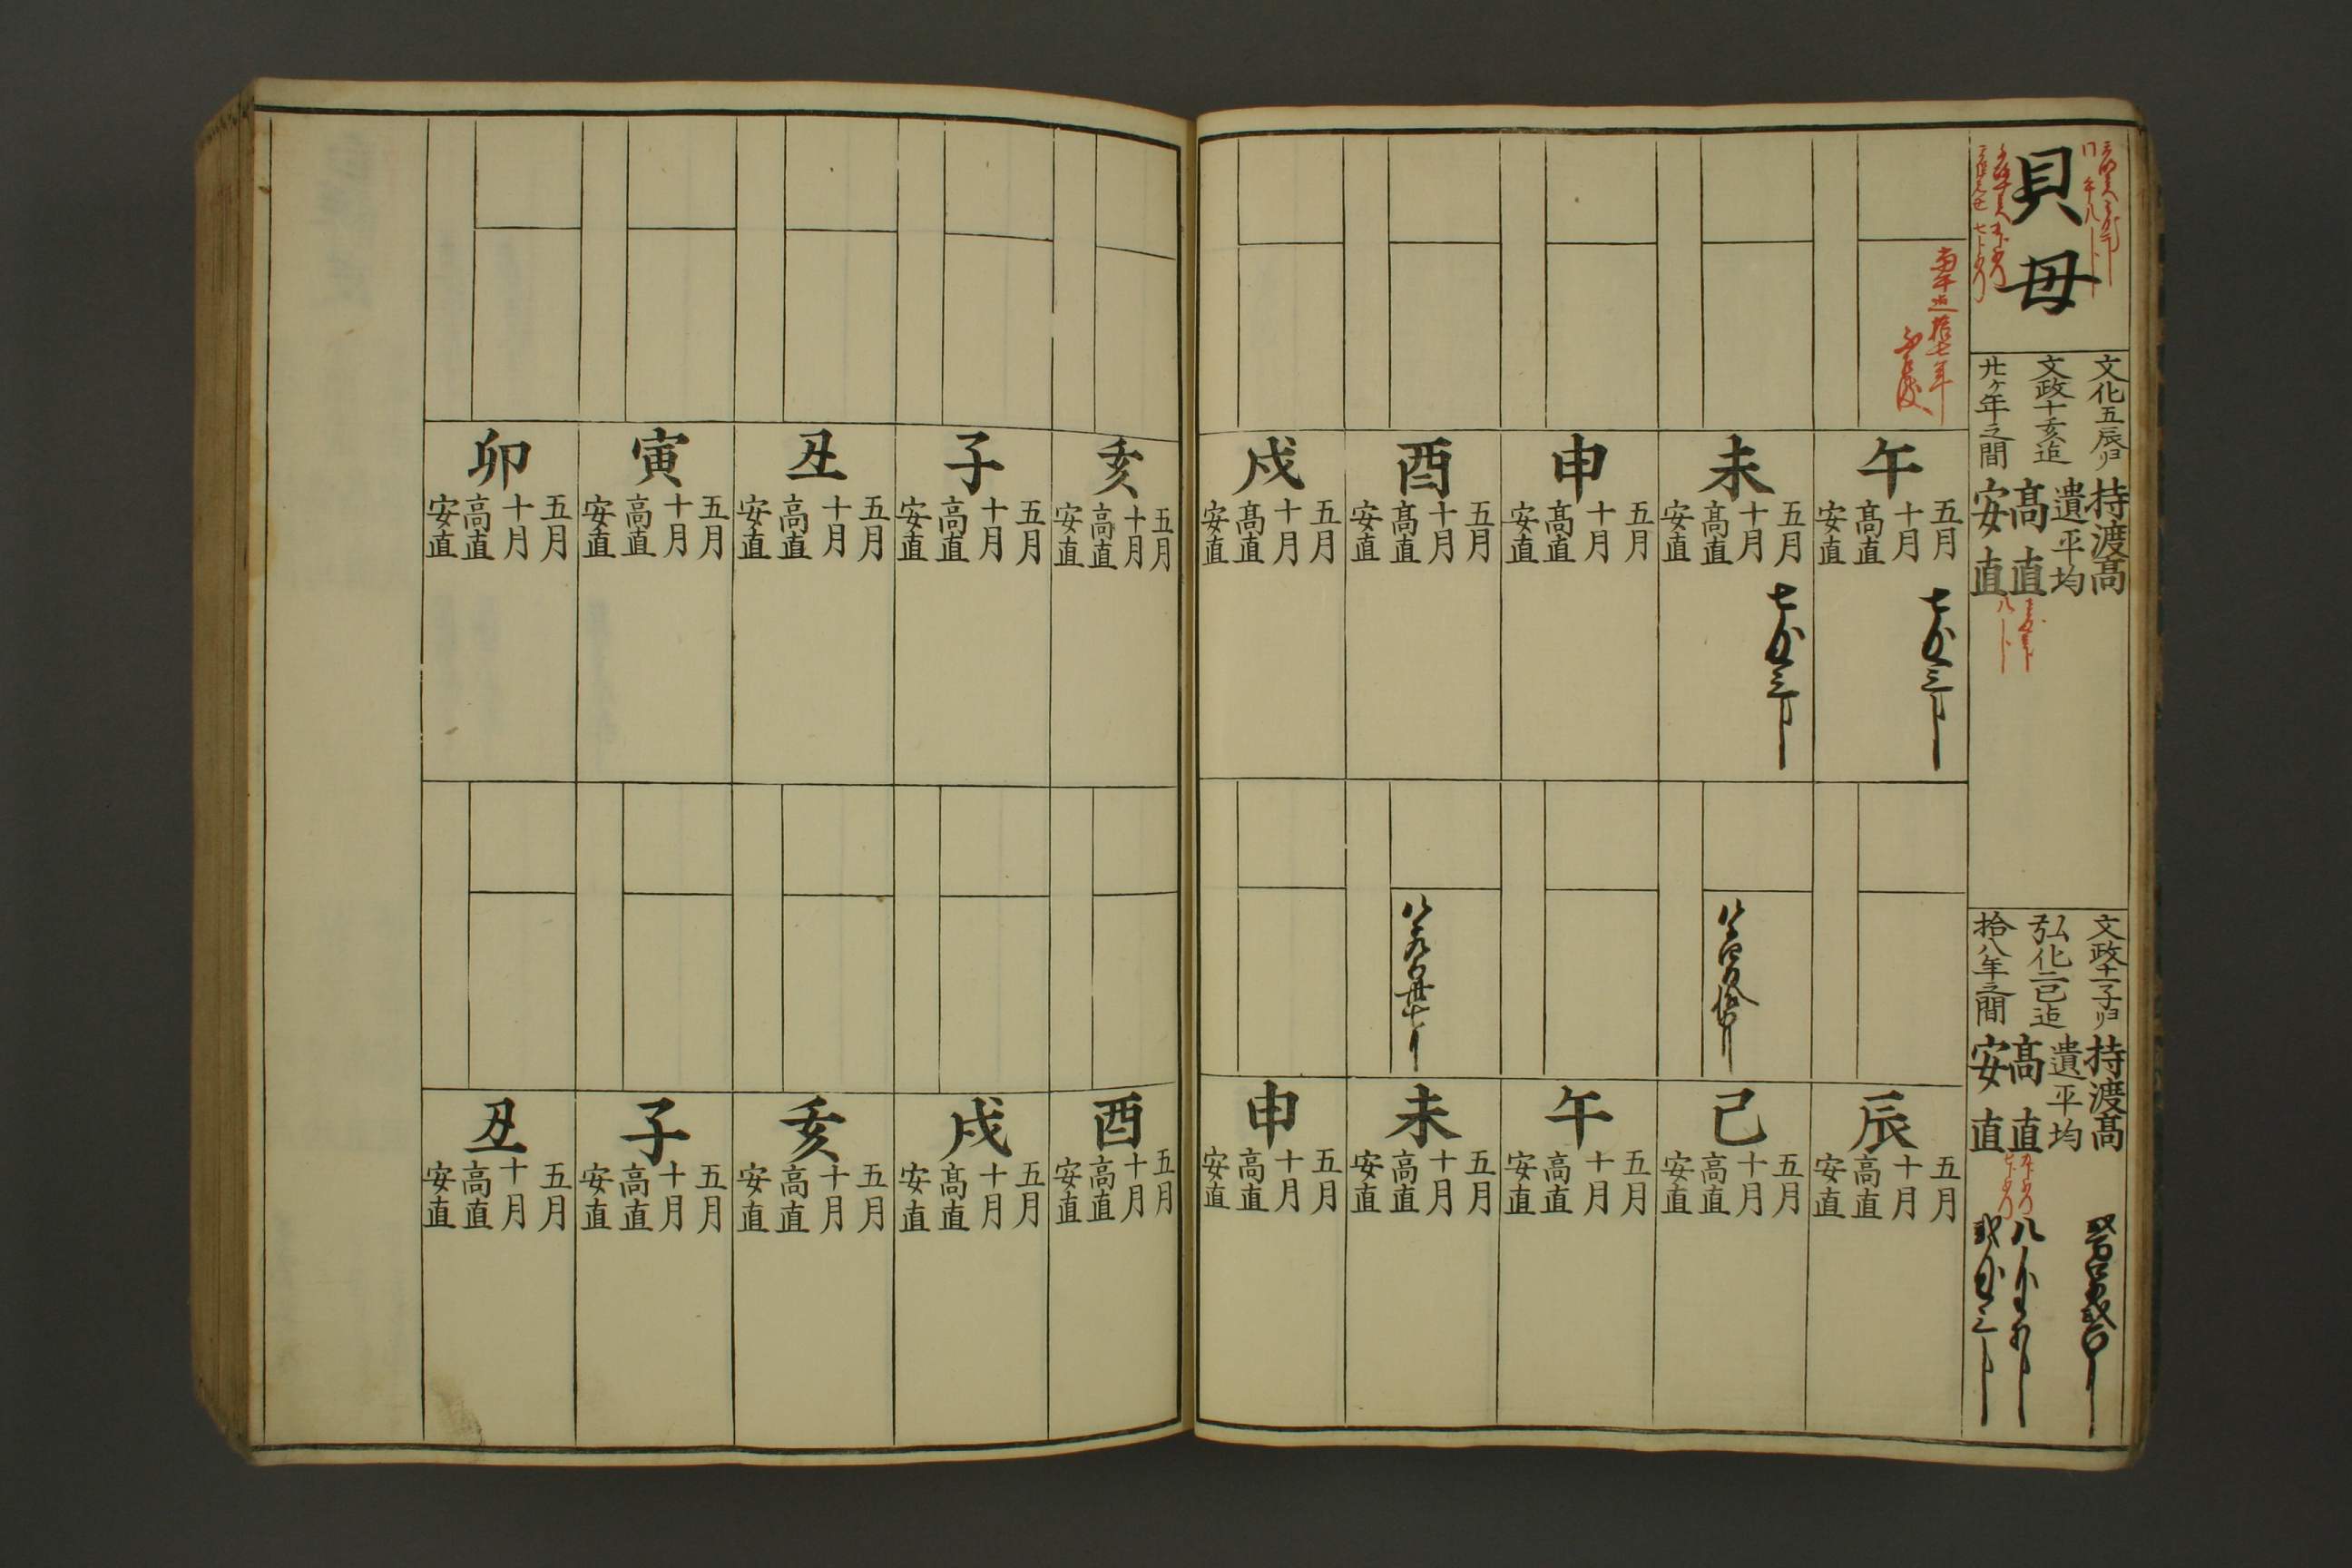 貝母
文化五辰ゟ
文政十亥迄
廿ケ年之間
持渡髙
遺平均
髙直
安直
文政十一子ゟ
弘化二巳迄
拾八年之間
持渡髙
遺平均
髙直
安直
午
五月
十月
髙直
安直
未
五月
十月
髙直
安直
申
五月
十月
髙直
安直
酉
五月
十月
髙直
安直
戌
五月
十月
髙直
安直
辰
五月
十月
髙直
安直
己
五月
十月
髙直
安直
午
五月
十月
髙直
安直
未
五月
十月
髙直
安直
申
五月
十月
髙直
安直
亥
五月
十月
髙直
安直
子
五月
十月
髙直
安直
丑
五月
十月
髙直
安直
寅
五月
十月
髙直
安直
卯
五月
十月
髙直
安直
酉
五月
十月
髙直
安直
戌
五月
十月
髙直
安直
亥
五月
十月
髙直
安直
子
五月
十月
髙直
安直
丑
五月
十月
髙直
安直